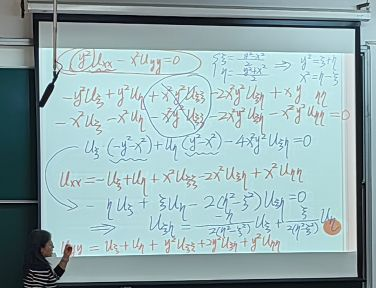 y²Uxx - x²Uyy = 0
{ ξ = (y²-x²)/2 , η = (y²+x²)/2 ⇒ y² = ξ+η
x² = η-ξ
-y²Uξ + y²Uη + x²y²Uξξ - 2x²y²Uξη + xy ηη
-x²Uξ - x²Uη - x²y²Uξξ - 2x²y²Uξη - x²y²Uηη = 0
Uξ (-y²-x²) + Uη (y²-x²) - 4x²y²Uξη = 0
Uxx = -Uξ + Uη + x²Uξξ - 2x²Uξη + x²Uηη
- ηUξ + ξUη - 2(η²-ξ²)Uξη = 0
⇒ Uξη = -η/(2(η²-ξ²)) Uξ + ξ/(2(η²-ξ²)) Uη
Uyy = Uξ + Uη + y²Uξξ + 2y²Uξη + y²Uηη